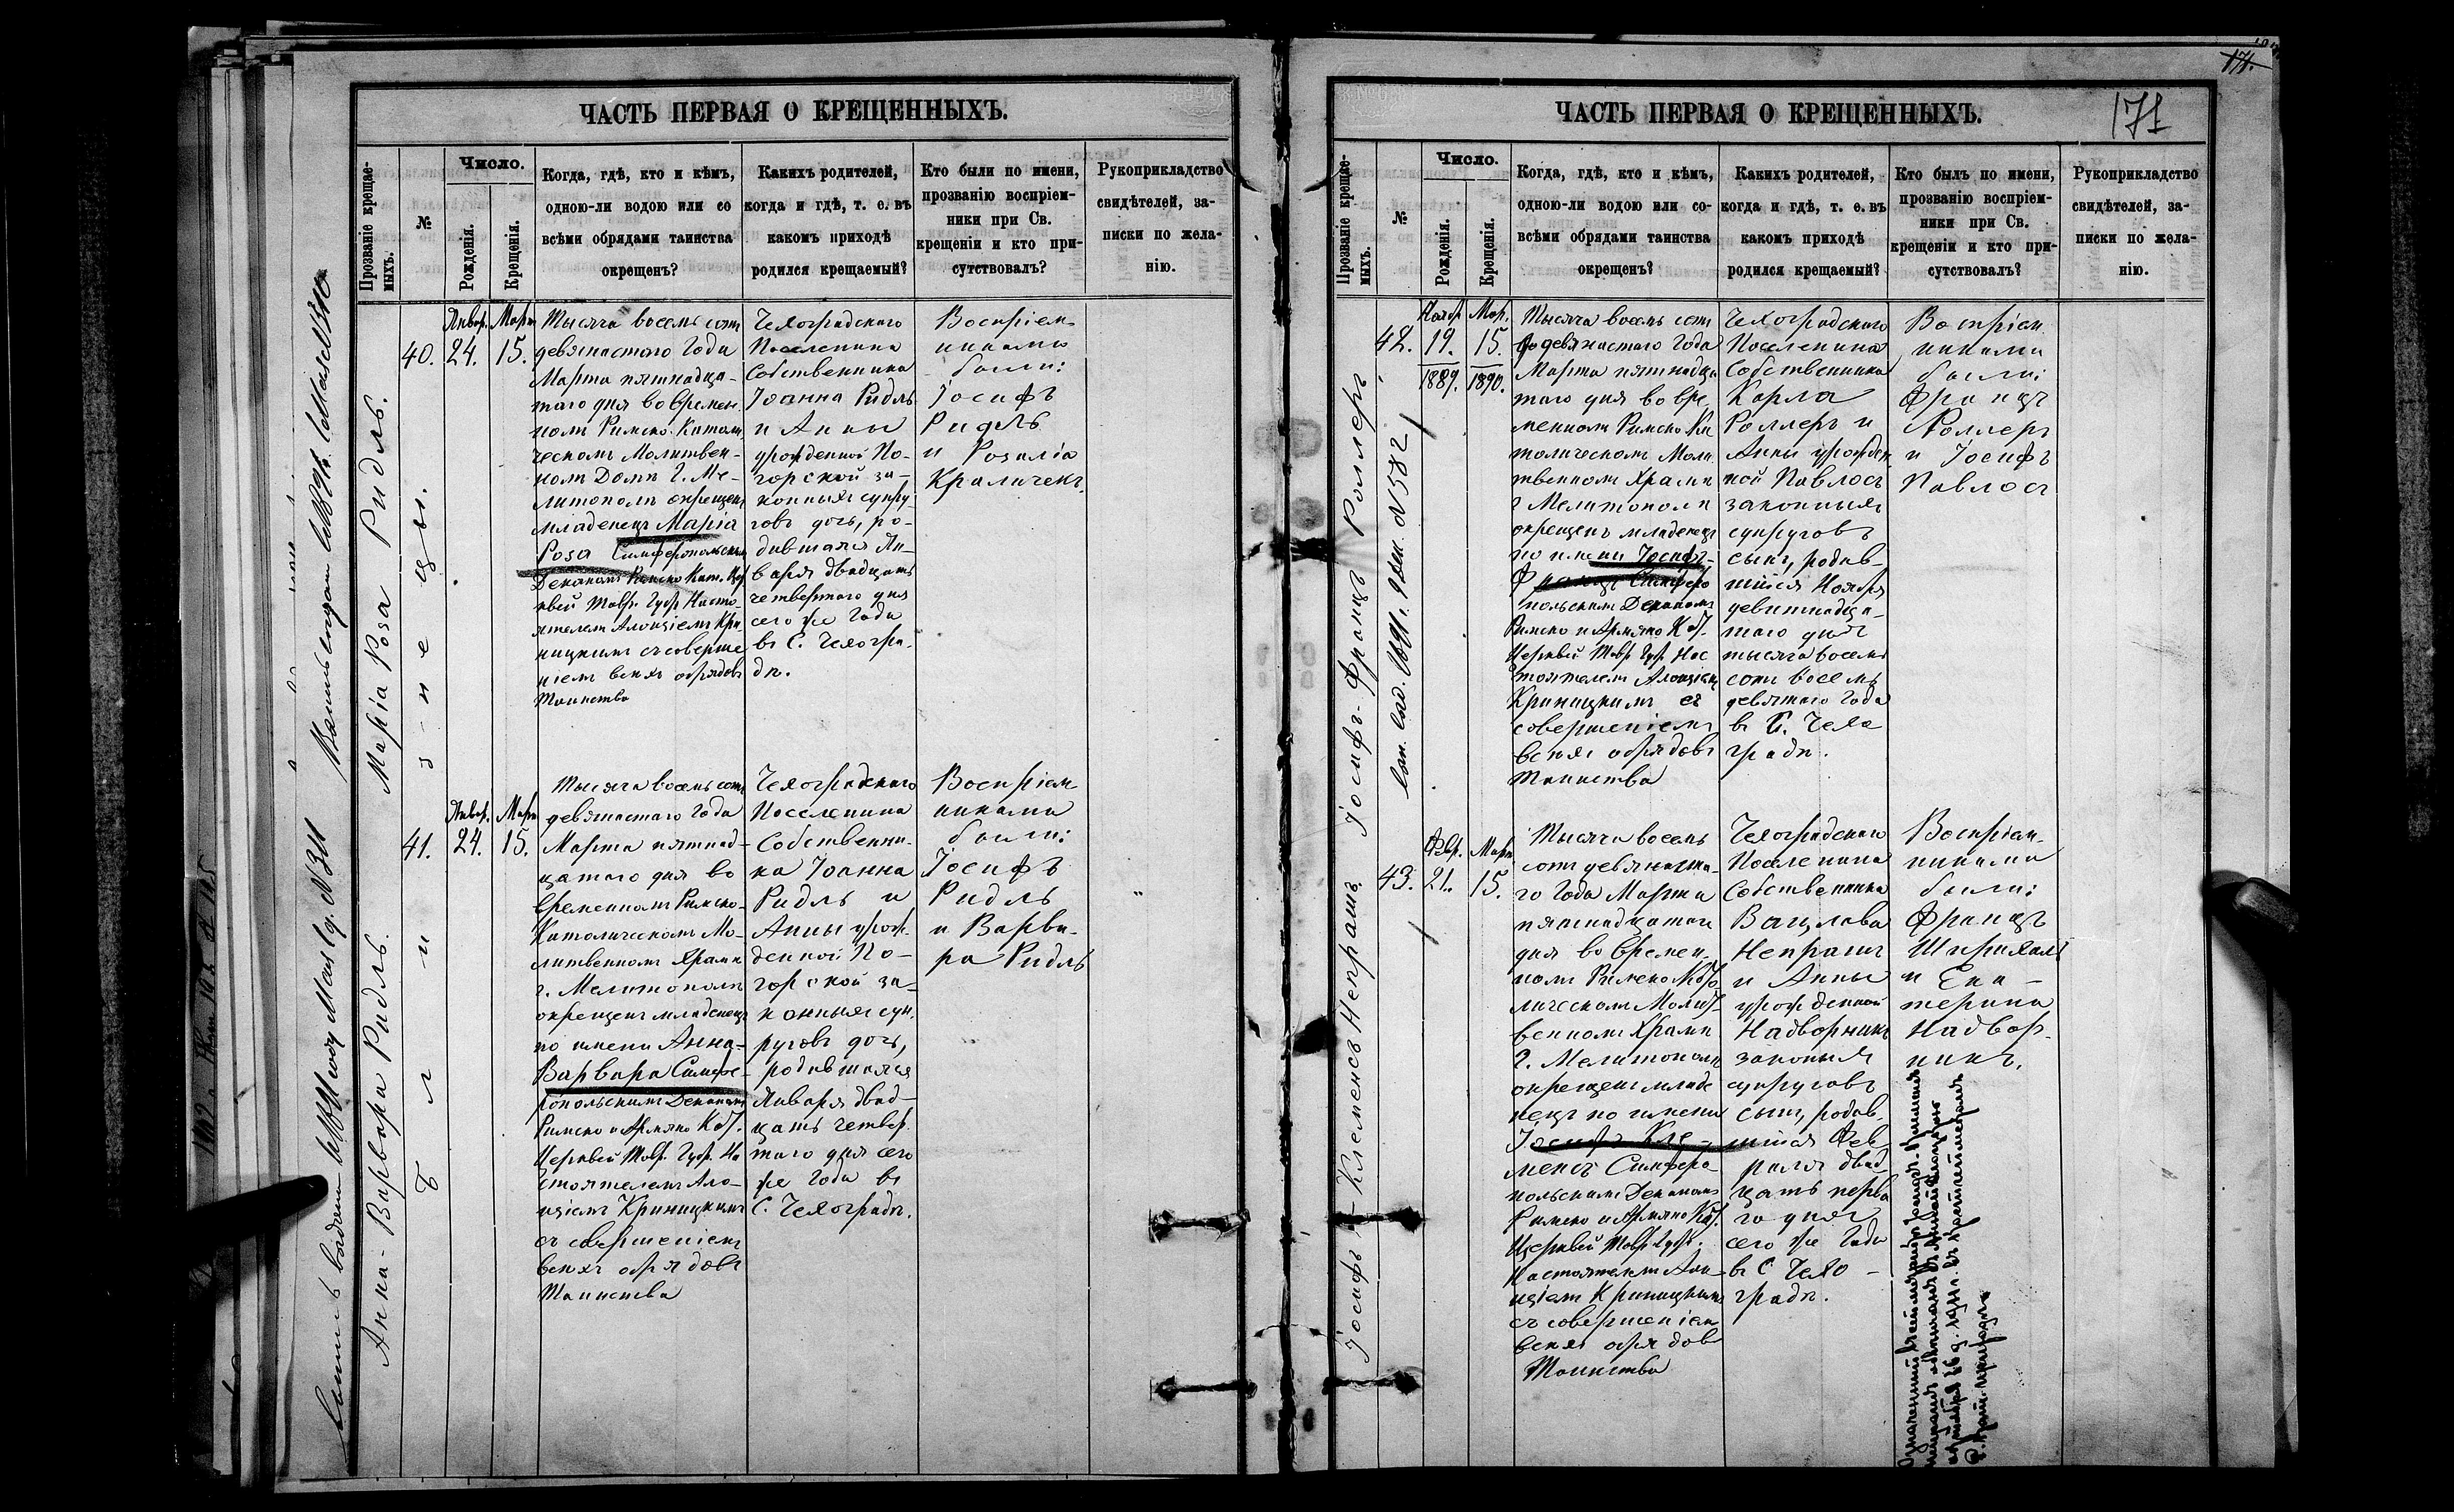 ЧАСТЬ ПЕРВАЯ О КРЕЩЕННЫХЪ.
Прозваніе крещае-
мыхъ.
№
Число.
Рожденія.
Крещенія.
Когда, гдѣ, кто и кѣмъ,
одною-ли водою или со
всѣми обрядами таинства
окрещенъ?
Какихъ родителей,
когда и гдѣ, т. е. въ
какомъ приходѣ
родился крещаемый?
Кто были по имени,
прозванію воспріем-
ники при Св.
крещеніи и кто при-
сутствовалъ?
Рукоприкладство
свидѣтелей, за-
писки по жела-
нію.
Марія Роза Ридль.
Близнецы.
40.
Январ.
24.
Март
15.
Тысяча восемь сотъ
девяностаго Года
Марта пятнадца-
таго дня во времен
номъ Римско-Католи
ческомъ Молитвен-
номъ Домѣ г. Ме-
литополѣ окрещенъ
младенецъ Марія
Роза Симферопольскимъ
Деканомъ Римско Кат. Цер
квей Тавр. Губ. Насто-
ятелемъ Алоизіемъ Кри
ницкимъ съ соверше
ніемъ всѣхъ обрядовъ
Таинства
Чехоградскаго
Поселенина
Собственника
Іоанна Ридль
и Анны
урожденной По-
горской за-
конныхъ супру-
говъ дочь, ро-
дившаяся Ян-
варя двадцать
четвертаго дня
сего же Года
въ С. Чехогра-
дѣ.
Воспріем
никами
были:
Іосифъ
Ридль
и Розалія
Краличекъ.
Анна-Варвара Ридль.
41.
Январ.
24.
Март
15.
Тысяча восемь сотъ
девяностаго Года
Марта пятнад-
цатаго дня во
временномъ Римско-
Католическомъ Мо-
литвенномъ Храмѣ
г. Мелитополѣ
окрещенъ младенецъ
по имени Анна-
Варвара Симфе-
ропольскимъ Деканомъ
Римско и Армяно Кат.
Церквей Тавр. Губ. На
стоятелемъ Ало-
изіемъ Криницкимъ
съ совершеніемъ
всѣхъ обрядовъ
Таинства
Чехоградскаго
Поселенина
Собственни-
ка Іоанна
Ридль и
Анны урож-
денной По-
горской за-
конныхъ суп-
руговъ дочь,
родившаяся
Января двад-
цать четвер
таго дня сего
же Года въ
С. Чехоградѣ.
Воспріем
никами
были:
Іосифъ
Ридль
и Варва-
ра Ридль
ЧАСТЬ ПЕРВАЯ О КРЕЩЕННЫХЪ.
171
Прозваніе крещае-
мыхъ.
№
Число.
Рожденія.
Крещенія.
Когда, гдѣ, кто и кѣмъ,
одною-ли водою или со-
всѣми обрядами таинства
окрещенъ?
Какихъ родителей,
когда и гдѣ, т. е. въ
какомъ приходѣ
родился крещаемый?
Кто былъ по имени,
прозванію воспріем-
ники при Св.
крещеніи и кто при-
сутствовалъ?
Рукоприкладство
свидѣтелей, за-
писки по жела-
нію.
Іосифъ-Францъ Роллеръ
42.
Нояб
19.
1889.
Мар.
15.
1890.
Тысяча восемь сотъ
девяностаго Года
Марта пятнадца
таго дня во вре
менномъ Римско Ка
толическомъ Моли
твенномъ Храмѣ
г Мелитополѣ
окрещенъ младенецъ
по имени Іосифъ-
Францъ Симферо
польскимъ Деканомъ
Римско и Армяно Кат.
Церквей Тавр Губ Нас
тоятелемъ Алоизіемъ
Криницкимъ съ
совершеніемъ
всѣхъ обрядовъ
Таинства
Чехоградскаго
Поселенина
Собственника
Карла
Роллеръ и
Анны урожден
ной Павлосъ
законныхъ
супруговъ
сынъ, родив-
шійся Ноября
девятнадца-
таго дня
тысяча восемь
сотъ восемь
девятаго Года
въ С. Чехо
градѣ.
Воспріем
никами
были:
Францъ
Роллеръ
и Іосифъ
Павлосъ
Іосифъ-Клеменсъ Непрашъ
43.
Февр.
21.
Март
15.
Тысяча восемь
сотъ девяноста-
го Года Марта
пятнадцатаго
дня во времен-
номъ Римско Като
лическомъ Молит-
венномъ Храмѣ
г. Мелитополѣ
окрещенъ младе
нецъ по имени
Іосифъ Кле-
менсъ Симферо-
польскимъ Деканомъ
Римско и Армяно Кат.
Церквей Тавр Губ.
Настоятелемъ Ало-
изіемъ Криницкимъ
съ совершеніемъ
всѣхъ обрядовъ
Таинства
Чехоградскаго
Поселенина
Собственника
Вацлава
Непрашъ
и Анны
урожденной
Надворникъ
законныхъ
супруговъ
сынъ, родив-
шійся Фев
раля двад
цать перва
го дня
сего же Года
въ С Чехо-
градѣ.
Воспріем-
никами
были:
Францъ
Шприхалъ
и Ека-
терина
Надвор-
никъ.